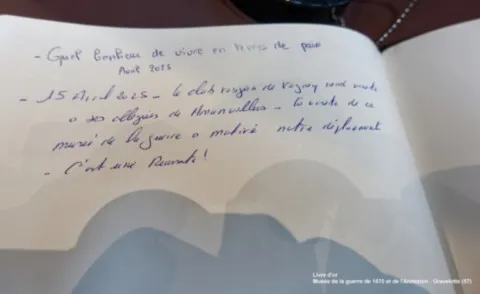 - Quel bonheur de vivre en temps de paix
Avril 2025
- 15 Avril 2025 - le club vosgien de Vagney rend visite
a ses collègues de Amanvillers - La visite de ce
musée de la guerre a motivé notre déplacement
- C'est une Réussite !
Livre d'or
Musée de la guerre de 1870 et de l'Annexion - Gravelotte (57)